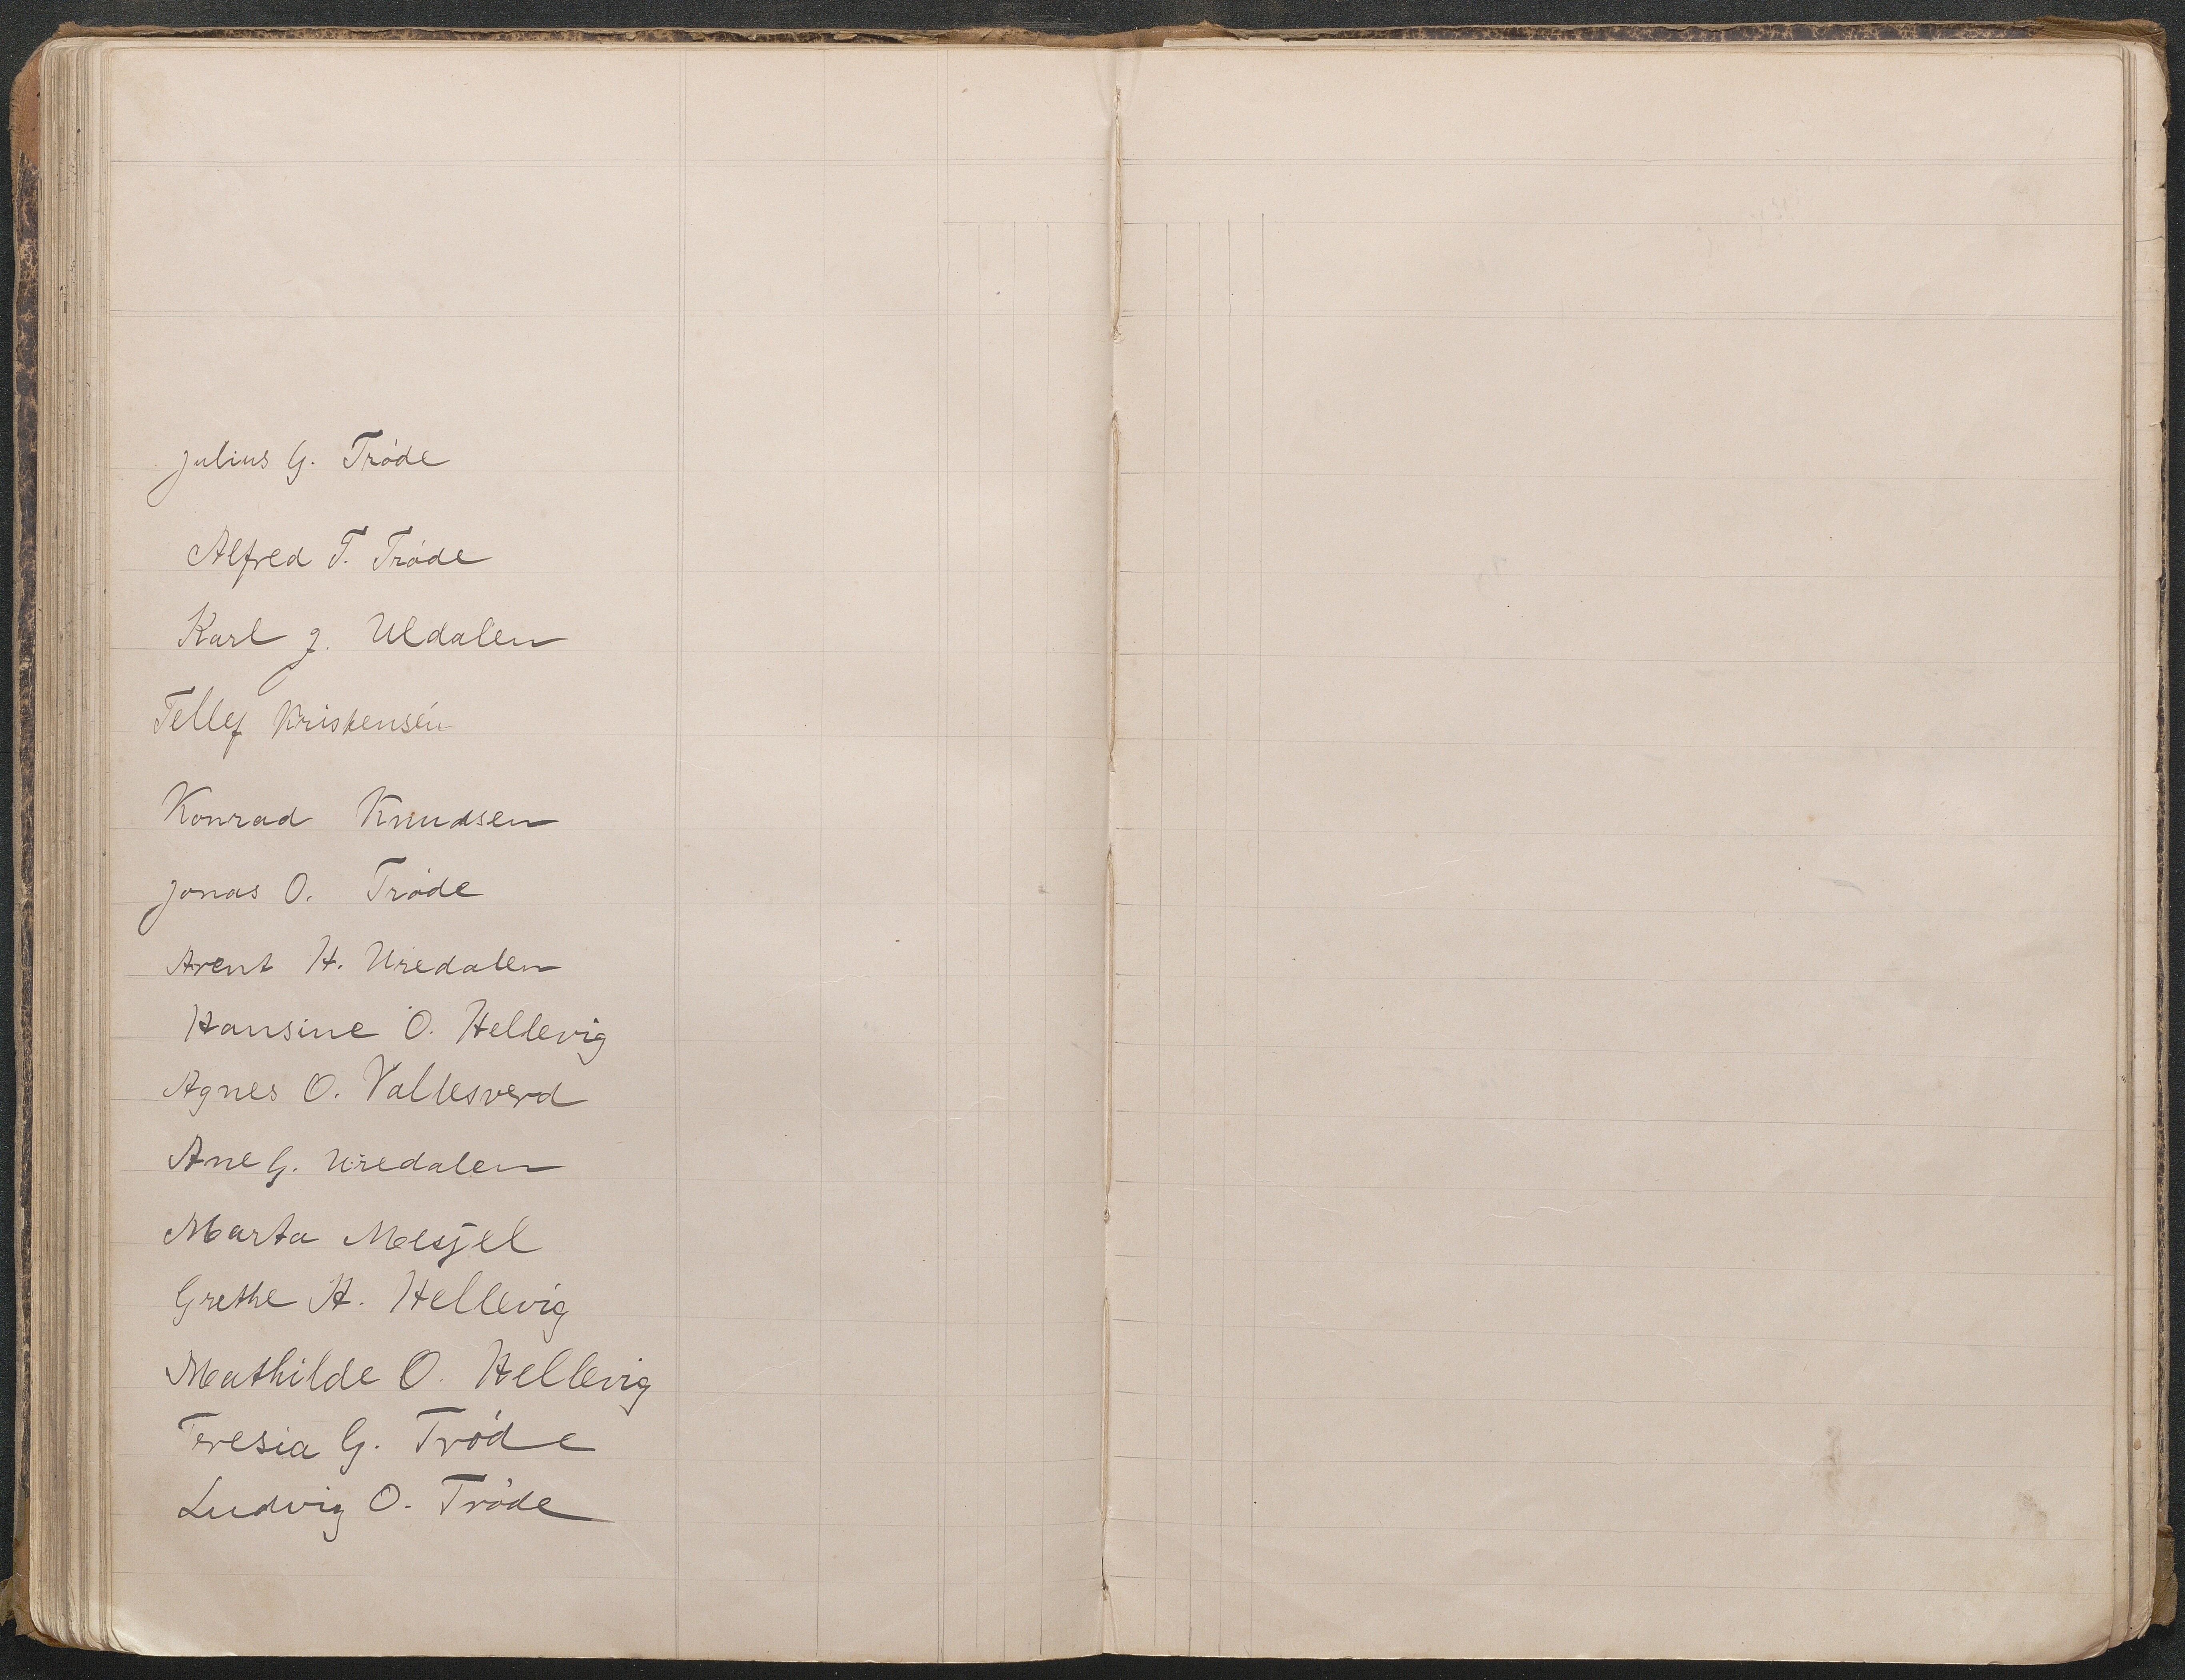 Julius G. Trøde
Alfred T. Trøde
Karl J. Uldalen
Tellef Kristensen
Konrad Knudsen
Jonas O. Trøde
Arent H. Uredalen
Hansine O. Hellevig
Agnes O. Vallesverd
Ane G. Uredalen
Marta Mesel
Grethe H. Hellevig
Mathilde O. Hellevig
Teresia G. Trøde
Ludvig O. Trøde